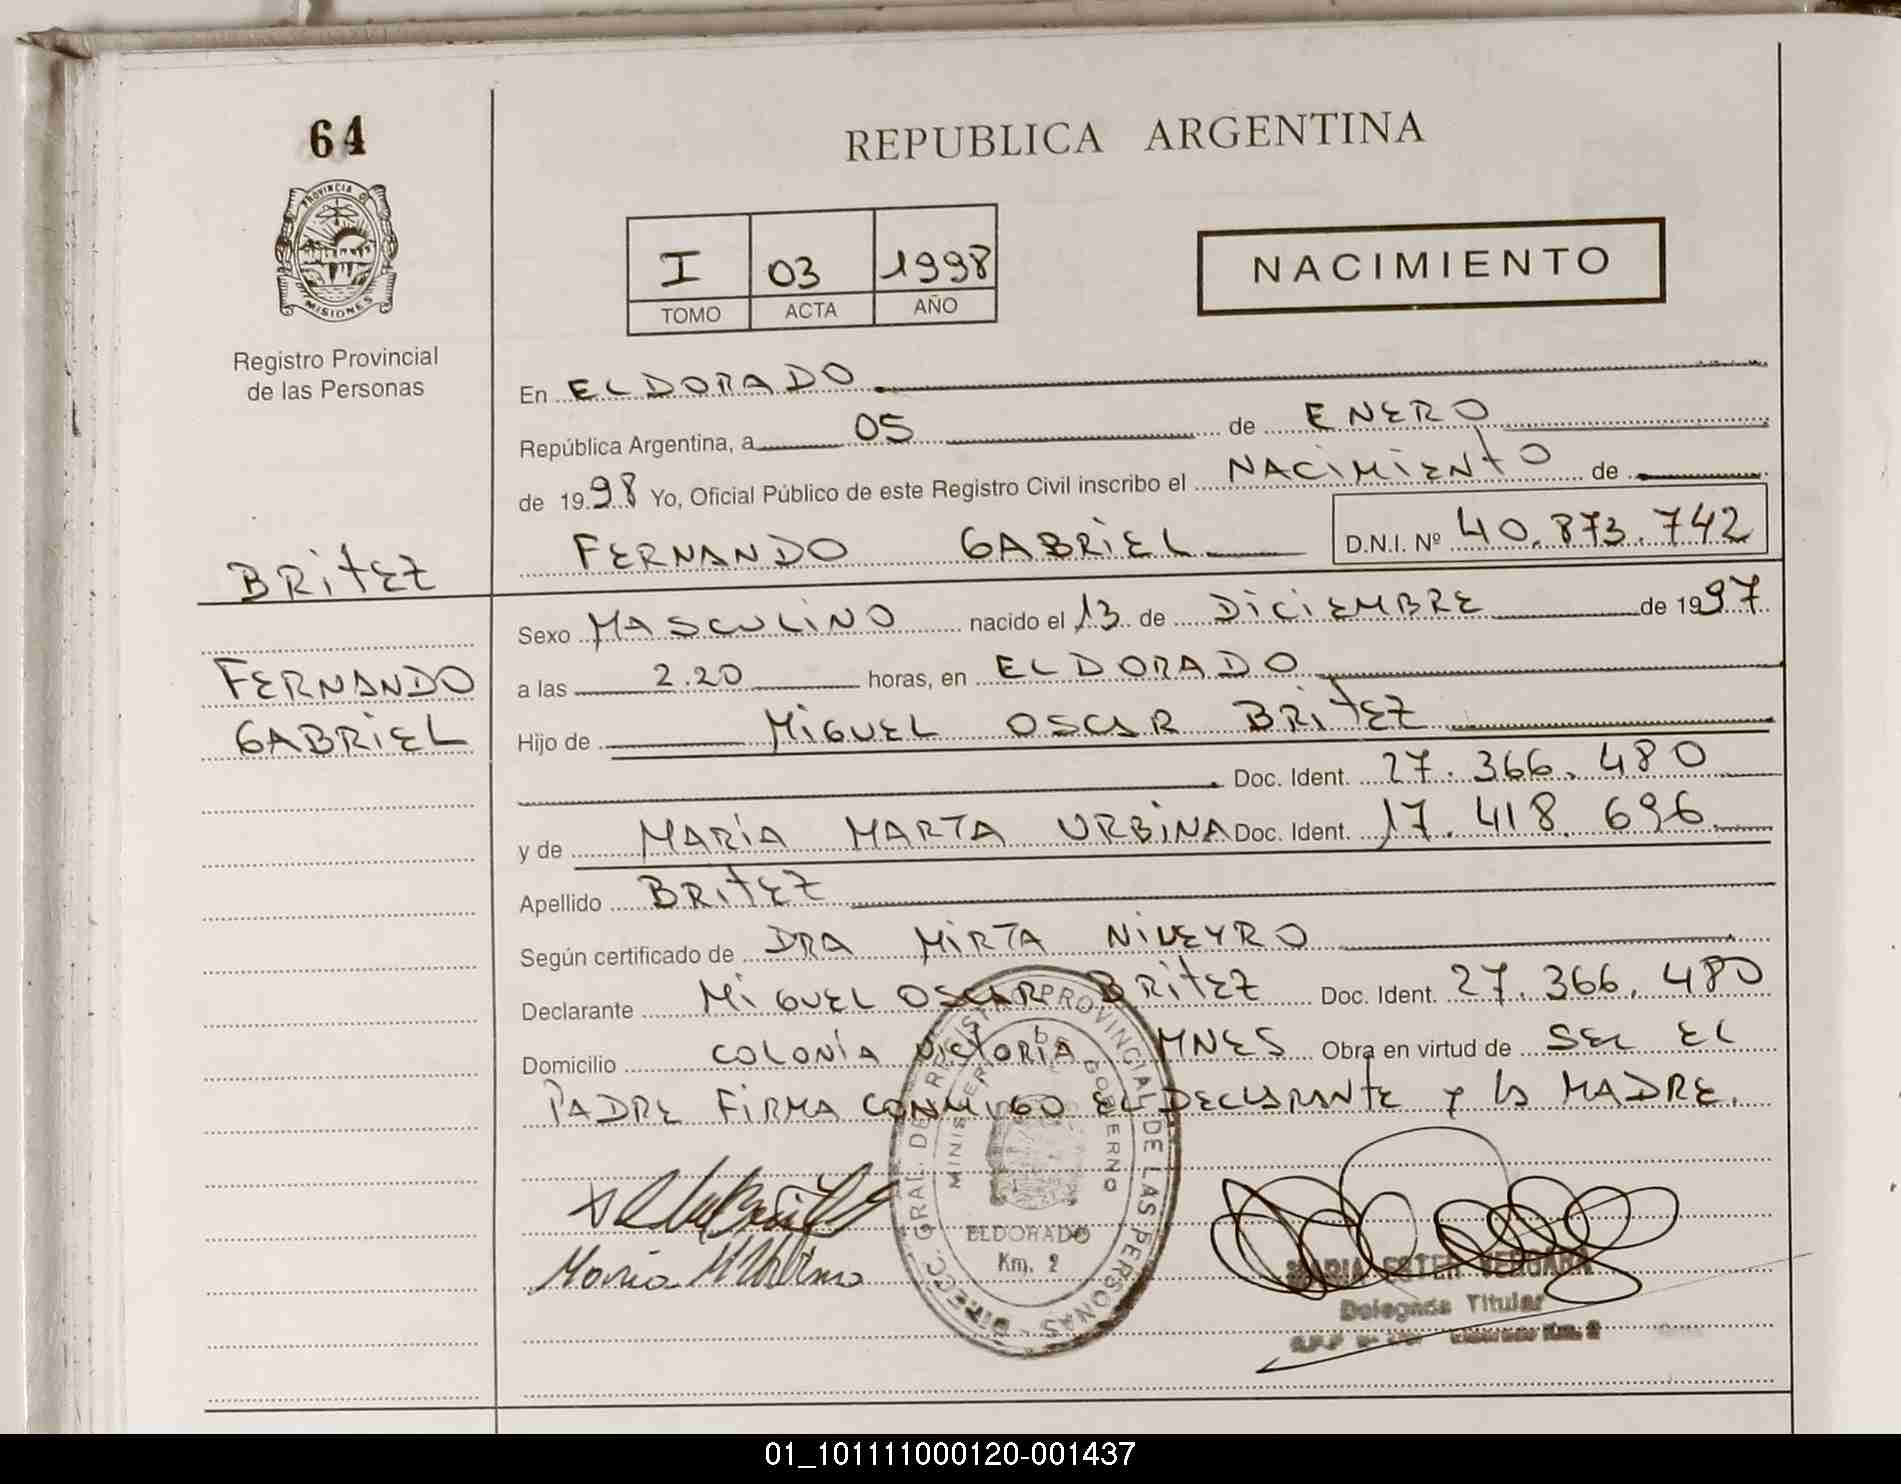 64
PROVINCIA DE
MISIONES
Registro Provincial
de las Personas
BRITEZ
FERNANDO
GABRIEL
REPUBLICA ARGENTINA
I 03 1998
TOMO ACTA AÑO
NACIMIENTO
En ELDORADO
República Argentina, a 05 de ENERO
de 1998 Yo, Oficial Público de este Registro Civil inscribo el NACIMIENTO de
FERNANDO GABRIEL D.N.I. Nº 40.873.742
Sexo MASCULINO nacido el 13 de DICIEMBRE de 1997
a las 2.20 horas, en ELDORADO
Hijo de MIGUEL OSCAR BRITEZ
Doc. Ident. 27.366.480
y de MARÍA MARTA URBINA Doc. Ident. 17.418.696
Apellido BRITEZ
Según certificado de DRA MIRTA NIVEYRO
Declarante MIGUEL OSCAR BRITEZ Doc. Ident. 27.366.480
Domicilio COLONÍA VICTORIA MNES Obra en virtud de SER EL
PADRE FIRMA CONMIGO EL DECLARANTE Y LA MADRE.
DIRECC. GRAL. DE REGISTRO PROVINCIAL DE LAS PERSONAS
MINISTERIO GOBIERNO
ELDORADO
Km. 2
MARIA ESTER VERGARA
Delegada Titular
Eldorado Km. 2
01_101111000120-001437